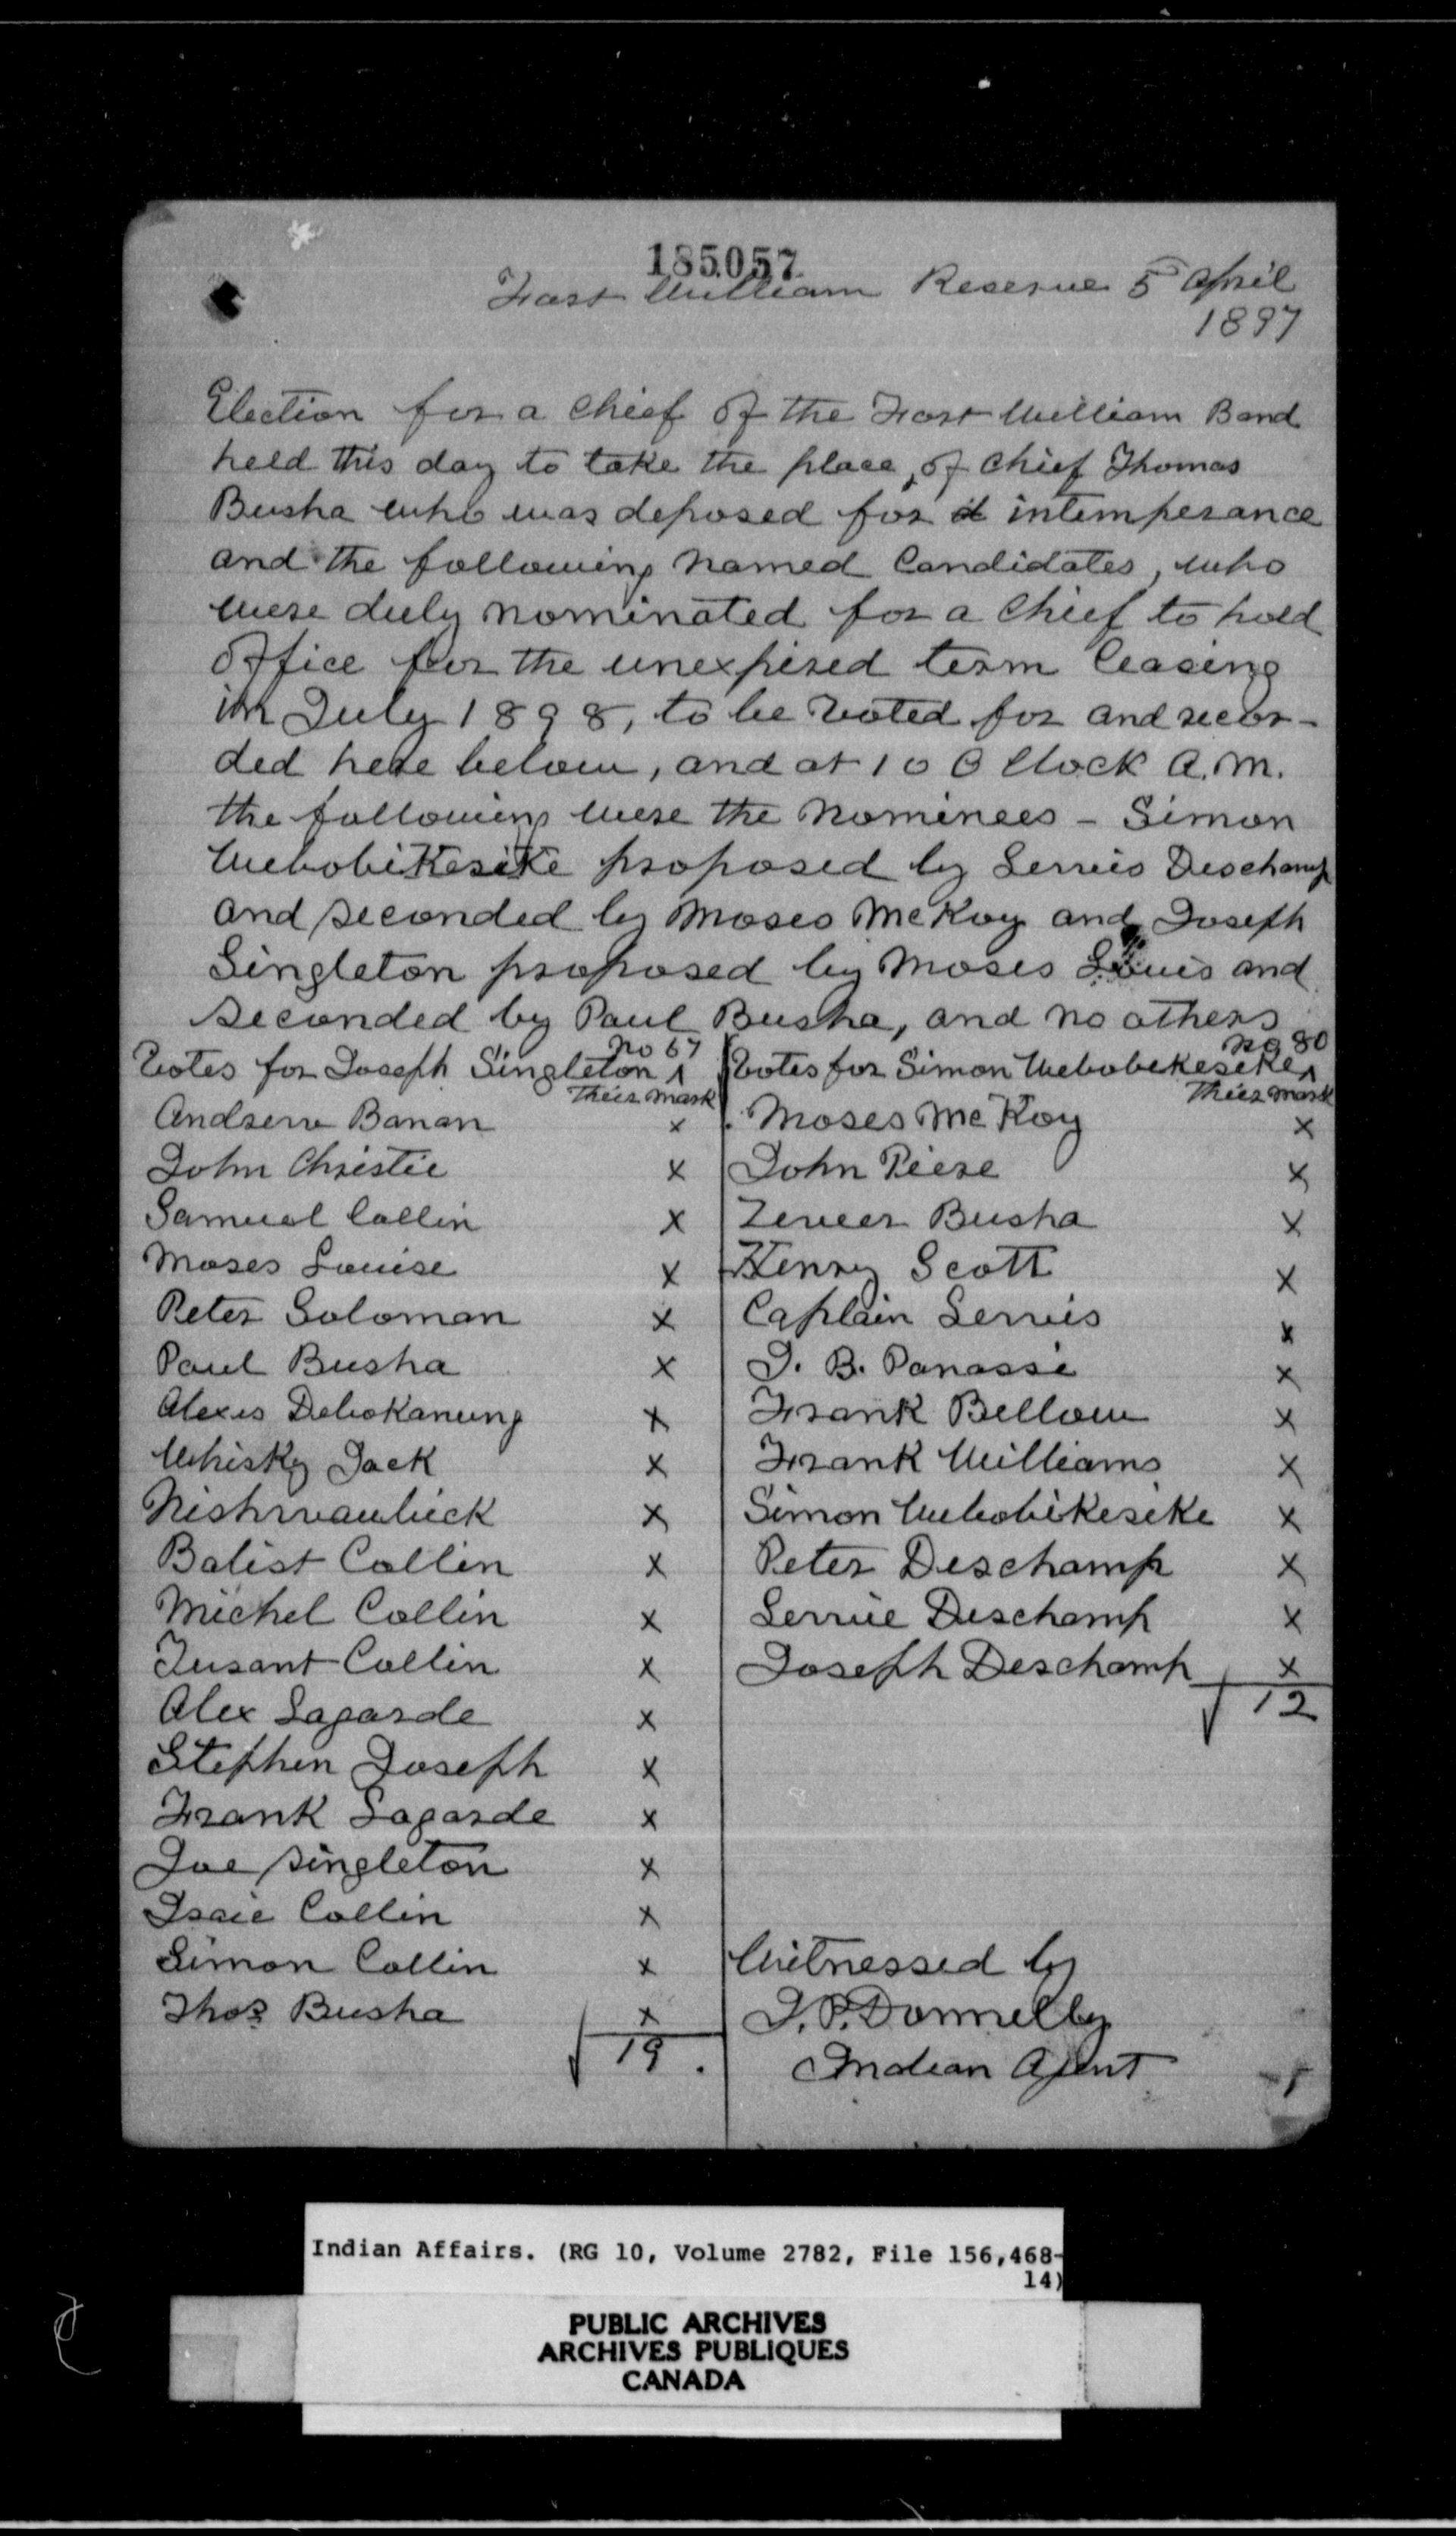 185057
Fort William Reserve 5 April
1897
Election for a Chief of the Fort William Band
held this day to take the place, of Chief Thomas
Busha who was deposed for intemperance
and the following named Candidates, who
were duly nominated for a Chief to hold
Office for the unexpired term Ceasing
in July 1898, to be voted for and recor-
ded here below, and at 10 O Clock A.M.
the following were the Nominees - Simon
Webobikesike proposed by Serwis Deschamp
and seconded by Moses McKoy and Joseph
Singleton proposed by Moses Louis and
seconded by Paul Busha, and no others
Votes for Joseph Singleton no 67
Their mark
Andrew Banan x
John Christie x
Samuel Collin x
Moses Louise x
Peter Soloman x
Paul Busha x
Alexis Debokanung x
Whisky Jack x
Nishwaubick x
Batist Collin x
Michel Collin x
Tusant Collin x
Alex Lagarde x
Stephen Joseph x
Frank Lagarde x
Joe Singleton x
Isaie Collin x
Simon Collin x
Thos Busha x
19.
Votes for Simon Webobekeseke no 80
Their mark
Moses McKoy x
John Piere x
Zeveer Busha x
Henry Scott x
Captain Serwis x
J. B. Panassé x
Frank Bellow x
Frank Williams x
Simon Webobikeseke x
Peter Deschamp x
Serwie Deschamp x
Joseph Deschamp x
12
Witnessed by
J. P. Donnelly
Indian Agent
Indian Affairs. (RG 10, Volume 2782, File 156,468-
14)
PUBLIC ARCHIVES
ARCHIVES PUBLIQUES
CANADA